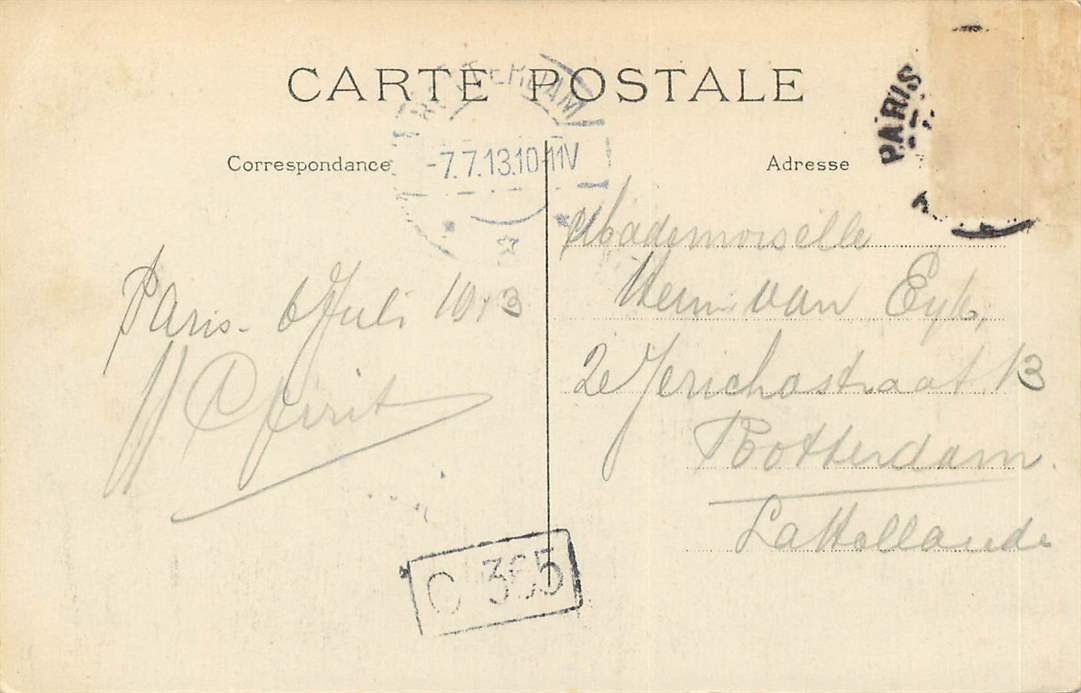 CARTE POSTALE
ROTTERDAM
-7.7.13.10-11V
PARIS
Correspondance
Adresse
Paris - 6 Juli 1913
Mademoiselle
van Eyk,
2e Jerichostraat 13
Rotterdam.
La Hollande
C 365